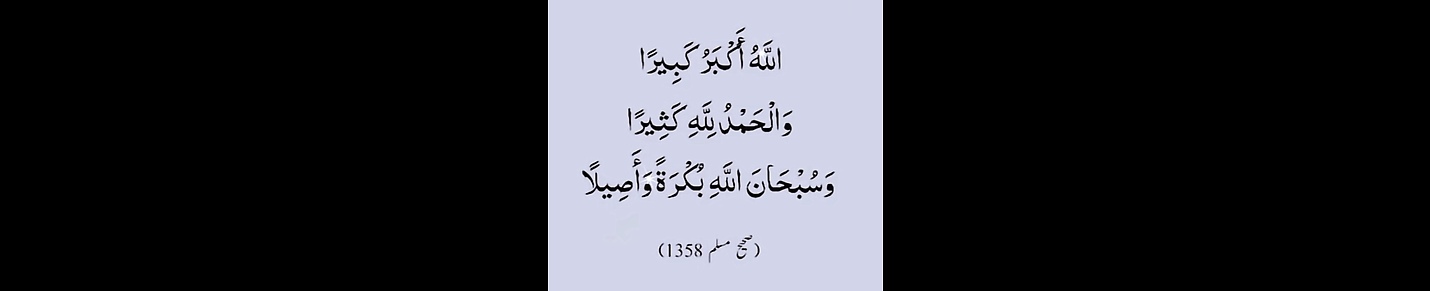 اللَّهُ أَكْبَرُ كَبِيرًا
وَالْحَمْدُ لِلَّهِ كَثِيرًا
وَسُبْحَانَ اللَّهِ بُكْرَةً وَأَصِيلًا
(صحیح مسلم 1358)